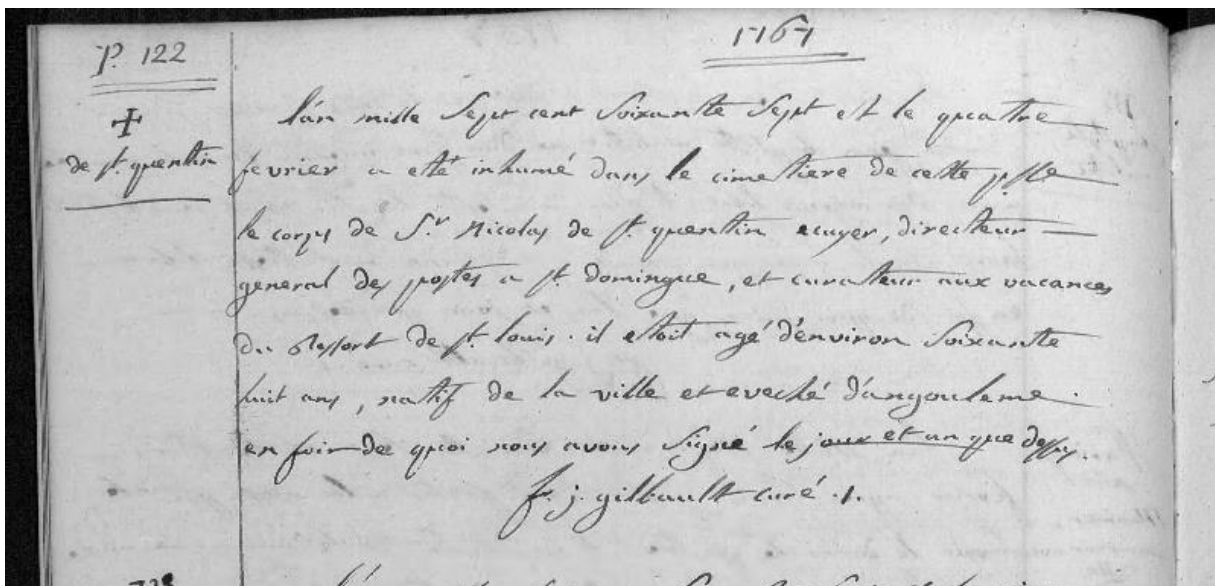 P. 122
1767
✝
de st. quentin
L'an mille Sept cent Soixante Sept et le quattre
fevrier a eté inhumé dans le cimetiere de cette psse
le corps de S.r Nicolas de st. quentin ecuyer, directeur
general des postes a st. domingue, et curateur aux vacances
du Ressort de st. louis. il etoit agé d'environ Soixante
huit ans, natif de la ville et eveché d'angouleme.
en foir de quoi nous avons Signé le jour et an que dessus.
fr. j. gilbault curé .1.